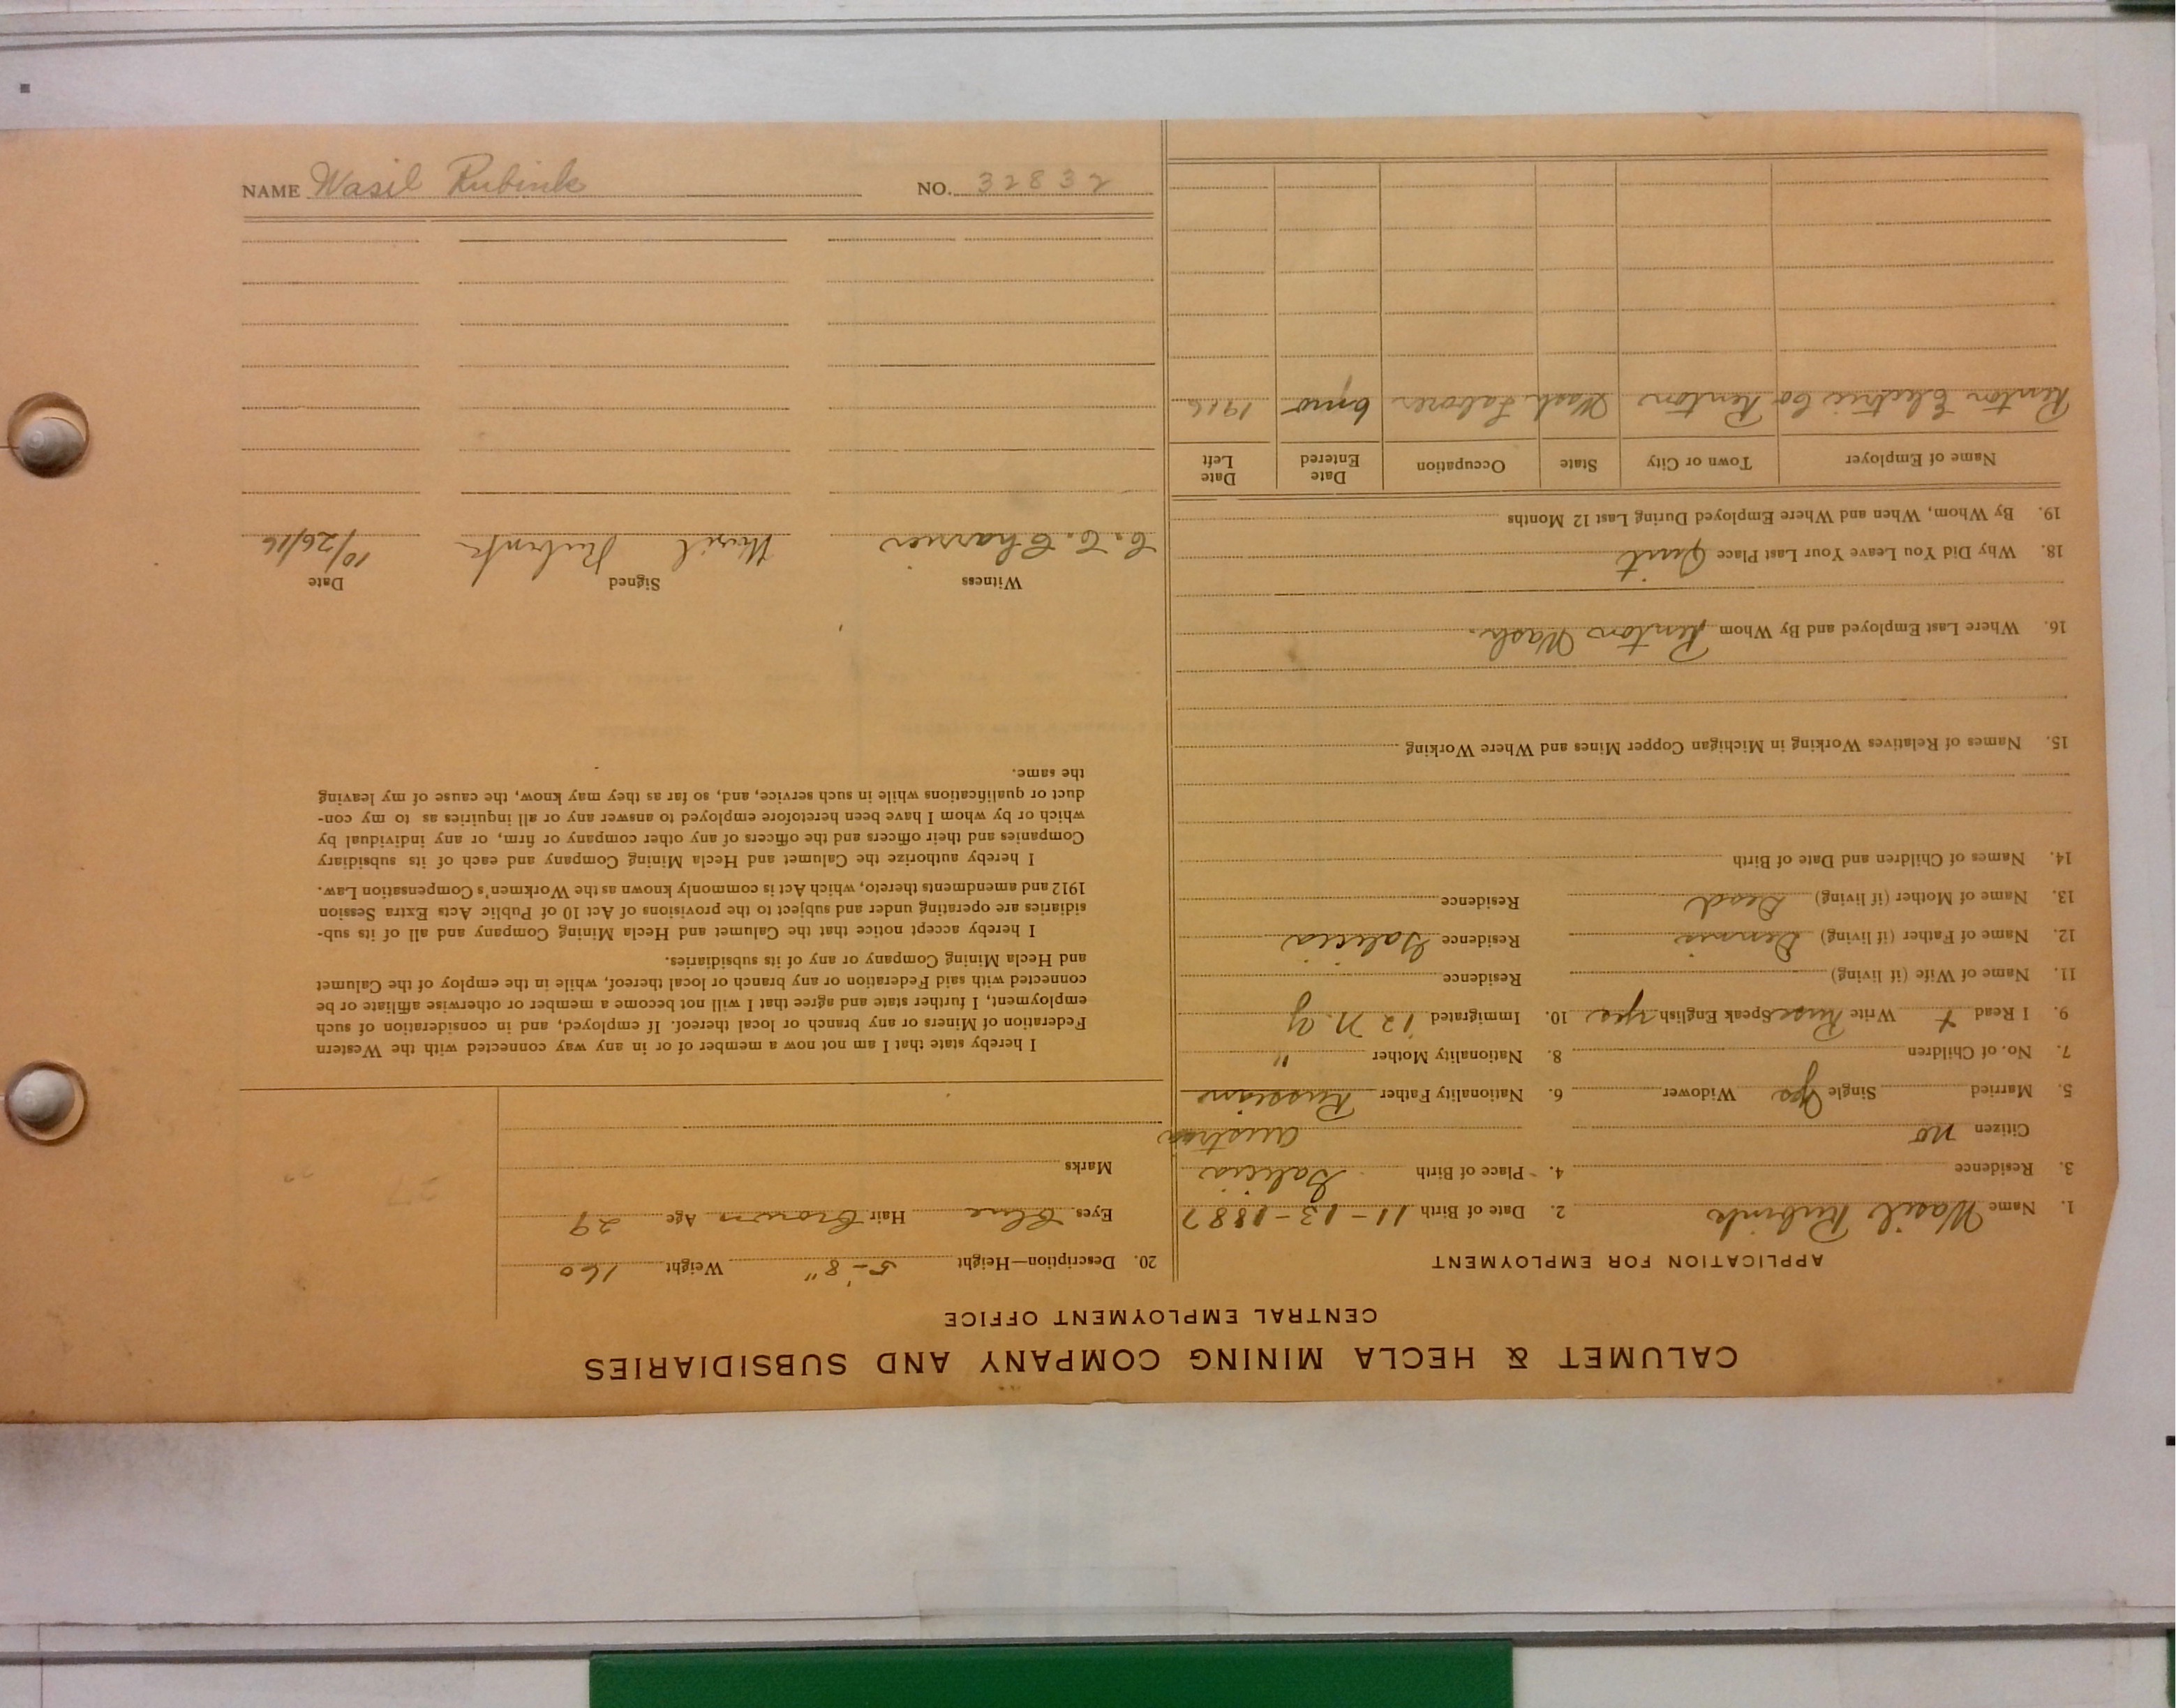 CALUMET & HECLA MINING COMPANY AND SUBSIDIARIES
CENTRAL EMPLOYMENT OFFICE
APPLICATION FOR EMPLOYMENT
1. Name Wasil Rubink 2. Date of Birth 11-13-1887
3. Residence 4. Place of Birth Galicia
Citizen no Austria
5. Married Single Yes Widower 6. Nationality Father Russian
7. No. of Children 8. Nationality Mother "
9. I Read + Write Russ Speak English yes 10. Immigrated '12 N.Y
11. Name of Wife (if living) Residence
12. Name of Father (if living) Dennis Residence Galicia
13. Name of Mother (if living) Dead Residence
14. Names of Children and Date of Birth
15. Names of Relatives Working in Michigan Copper Mines and Where Working
16. Where Last Employed and By Whom Renton Wash.
18. Why Did You Leave Your Last Place Quit
19. By Whom, When and Where Employed During Last 12 Months
Name of Employer Town or City State Occupation Date Entered Date Left
Renton Electric Co Renton Wash Laborer 6 mo 1916
20. Description—Height 5-'8" Weight 160
Eyes Blue Hair Brown Age 29
Marks
I hereby state that I am not now a member of or in any way connected with the Western
Federation of Miners or any branch or local thereof. If employed, and in consideration of such
employment, I further state and agree that I will not become a member or otherwise affiliate or be
connected with said Federation or any branch or local thereof, while in the employ of the Calumet
and Hecla Mining Company or any of its subsidiaries.
I hereby accept notice that the Calumet and Hecla Mining Company and all of its sub-
sidiaries are operating under and subject to the provisions of Act 10 of Public Acts Extra Session
1912 and amendments thereto, which Act is commonly known as the Workmen's Compensation Law.
I hereby authorize the Calumet and Hecla Mining Company and each of its subsidiary
Companies and their officers and the officers of any other company or firm, or any individual by
which or by whom I have been heretofore employed to answer any or all inquiries as to my con-
duct or qualifications while in such service, and, so far as they may know, the cause of my leaving
the same.
Witness Signed Date
C. C. Charrier Wasil Rubink 10/26/16
NAME Wasil Rubink NO. 32832